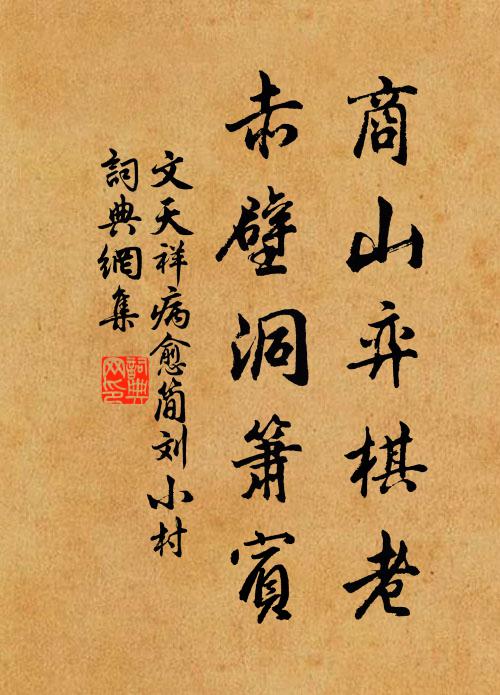 商山弈棋老
赤壁洞簫賓
文天祥病愈簡刘小村
詞典網集
詞典网印